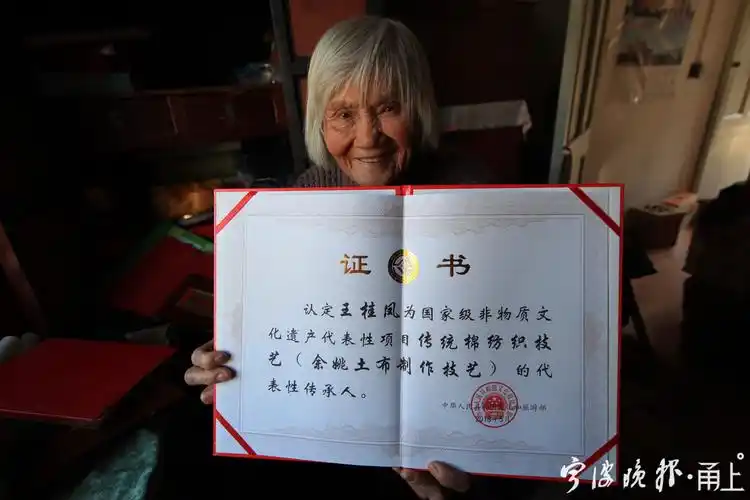 证 书
认定王桂凤为国家级非物质文
化遗产代表性项目传统棉纺织技
艺（余姚土布制作技艺）的代
表性传承人。
中华人民共和国文化和旅游部
宁波晚报·甬上